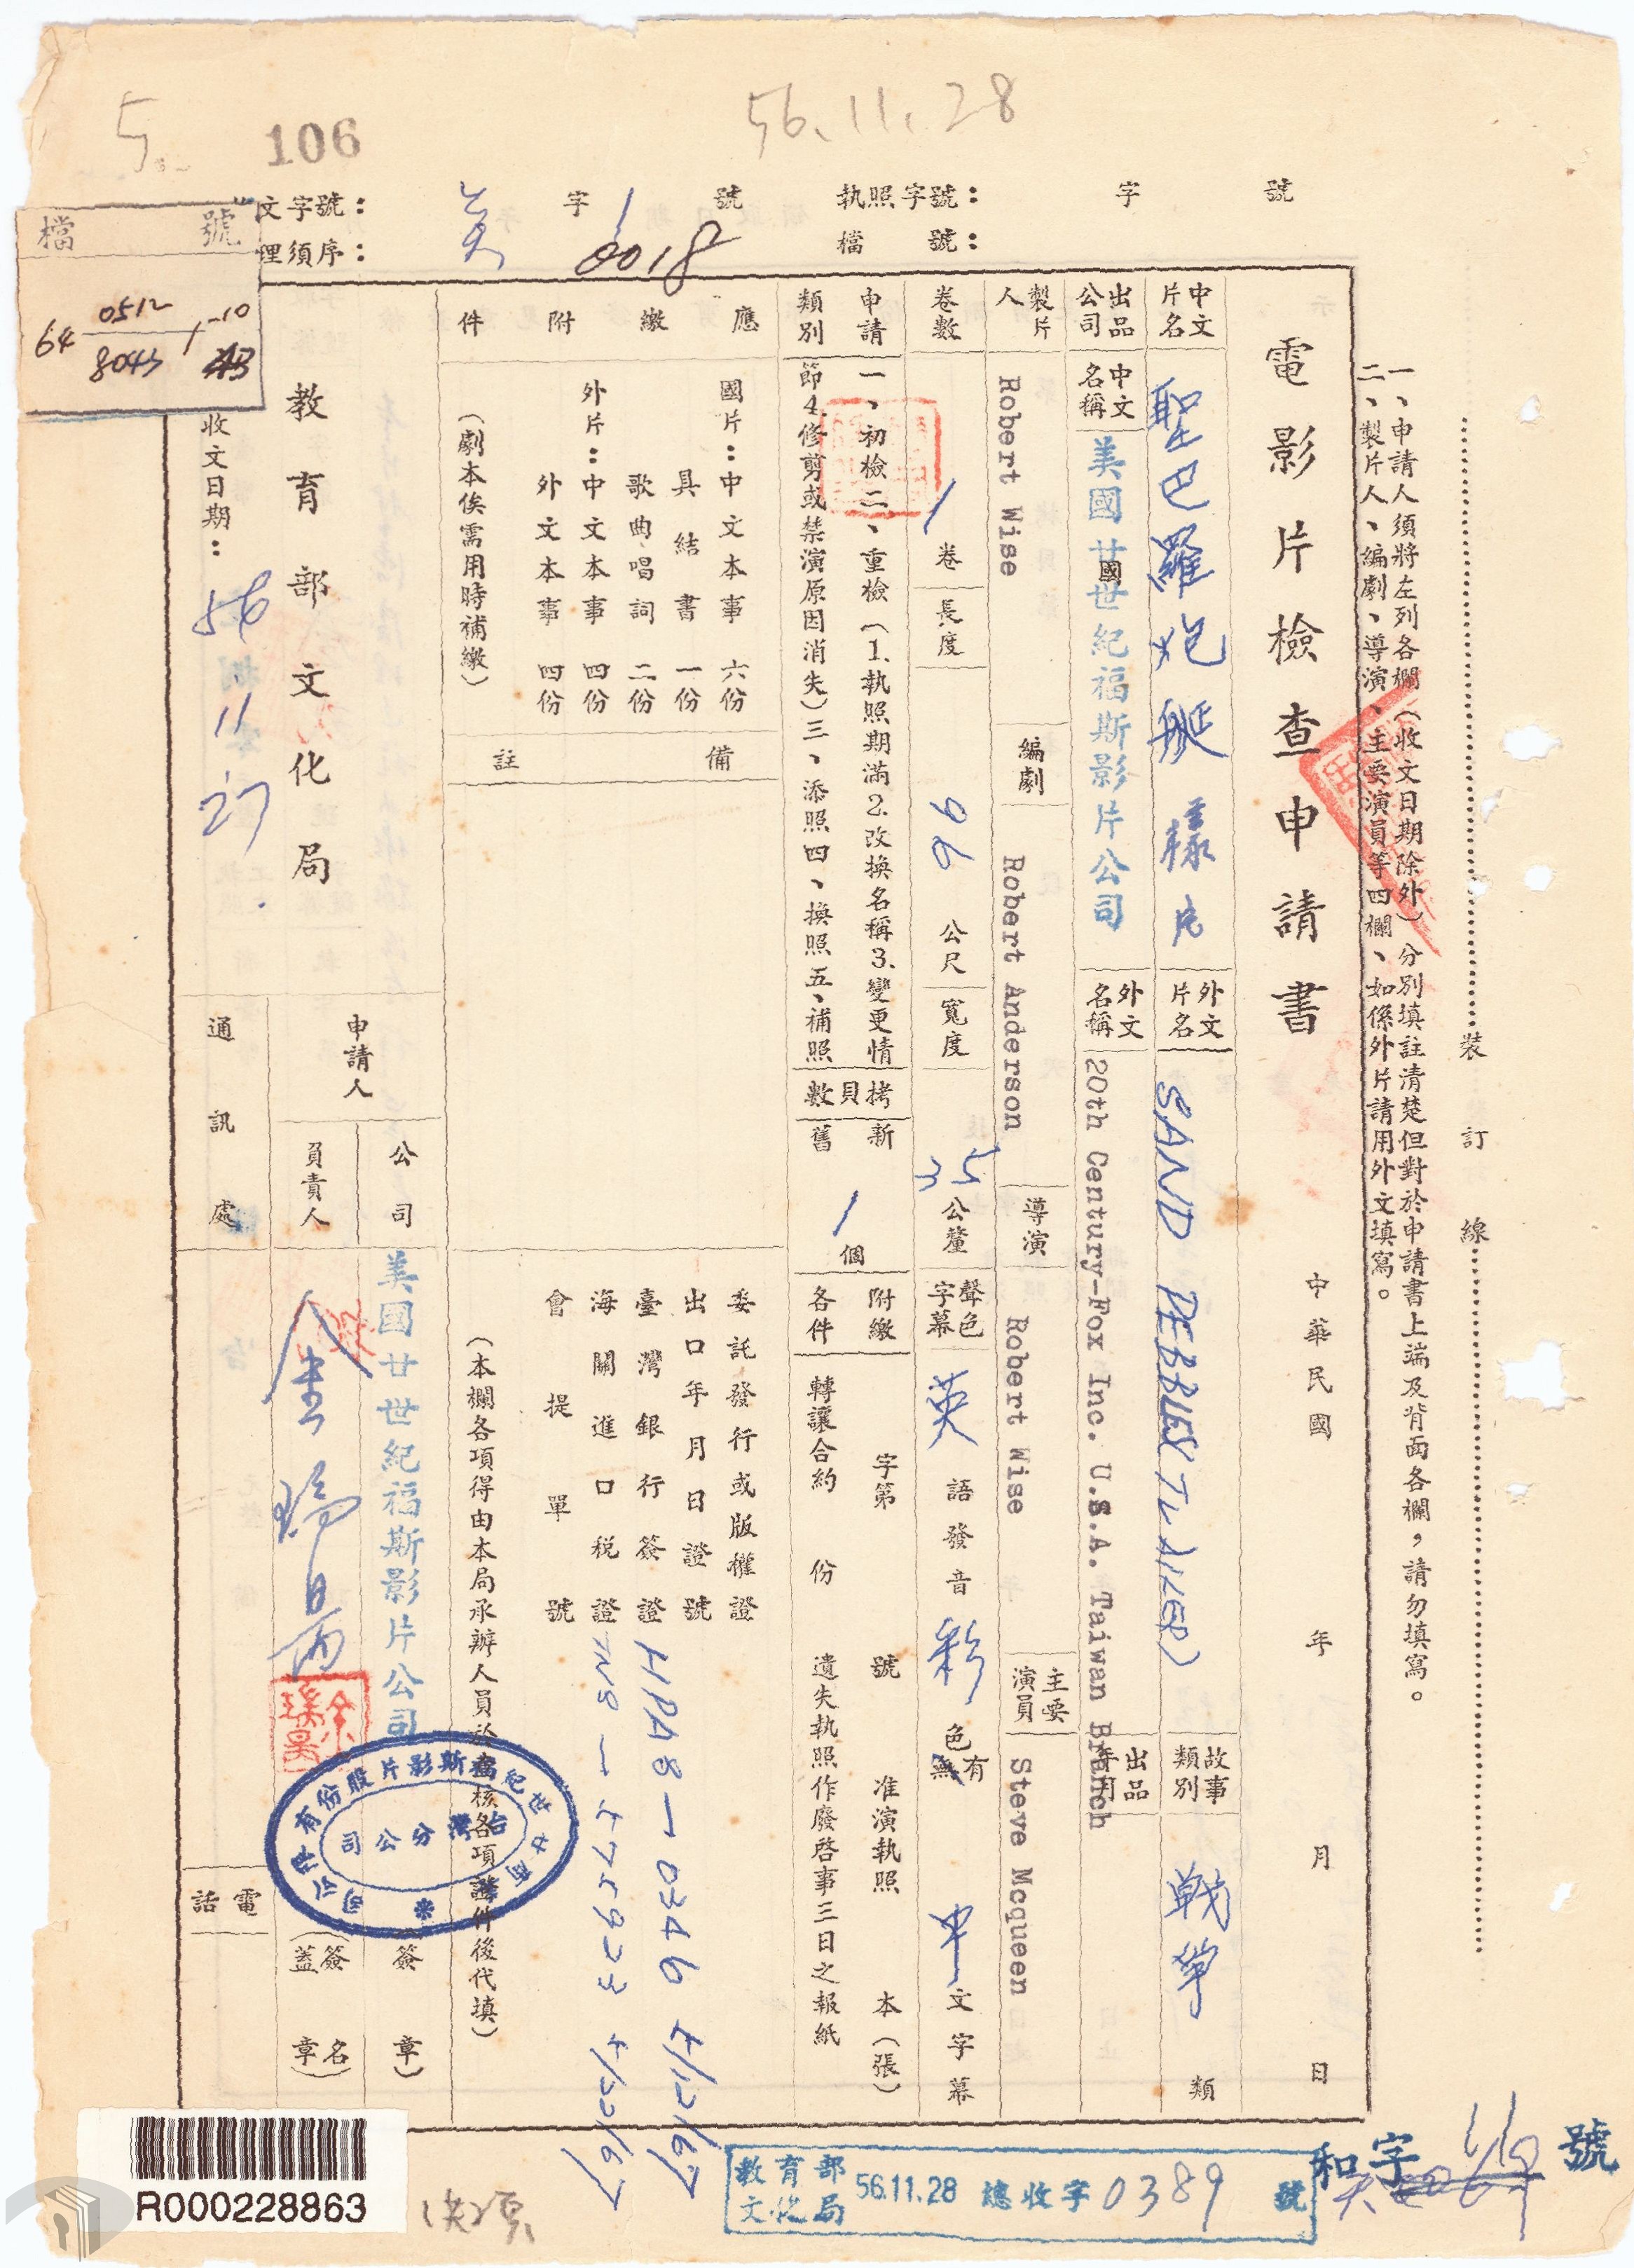 5.
106
56.11.28
文字號：
美
字
1
號
執照字號：
字
號
理須序：
美
0018
檔
號：
檔
號
64
0512
8043
1
-10
裝
訂
線
一、申請人須將左列各欄（收文日期除外）分別填註清楚但對於申請書上端及背面各欄，請勿填寫。
二、製片人、編劇、導演、主要演員等四欄、如係外片請用外文填寫。
電影片檢查申請書
中華民國
年
月
日
中文片名
聖巴羅炮艇 樣片
外文片名
SAND PEBBLES TLAILER)
故事類別
戰爭
類
出品公司
中文名稱
美國廿世紀福斯影片公司
國
外文名稱
20th Century-Fox Inc. U.S.A. Taiwan Branch
出品
製片人
Robert Wise
編劇
Robert Anderson
導演
Robert Wise
主要演員
Steve Mcqueen
卷數
1
卷
長度
96
公尺
寬度
35
公釐
聲色字幕
英
語發音
彩
色
有
無
中
文字幕
申請類別
一、初檢二、重檢（1.執照期滿2.改換名稱3.變更情
節4.修剪或禁演原因消失）三、添照四、換照五、補照
拷貝數
新
舊
1
個
附繳各件
字第
號
准演執照
本（張）
轉讓合約
份
遺失執照作廢啓事三日之報紙
應繳附件
國片：中文本事 六份
具結書 一份
歌曲唱詞 二份
外片：中文本事 四份
外文本事 四份
（劇本俟需用時補繳）
備註
委託發行或版權證
出口年月日證號
臺灣銀行簽證
HPA8-0346 4/12/67
海關進口稅證
4/22/67
會提單號
（本欄各項得由本局承辦人員於審核各項證件後代填）
教育部文化局
收文日期：
56
11
27
申請人
公司
美國廿世紀福斯影片公司
簽
章）
負責人
金瑞昌
金瑞昌
（簽名
蓋章）
通訊處
電話
商廿世紀福斯影片股份有限公司
台灣分公司
R000228863
教育部
文化局
56.11.28
總收字
0389
號
和字
號